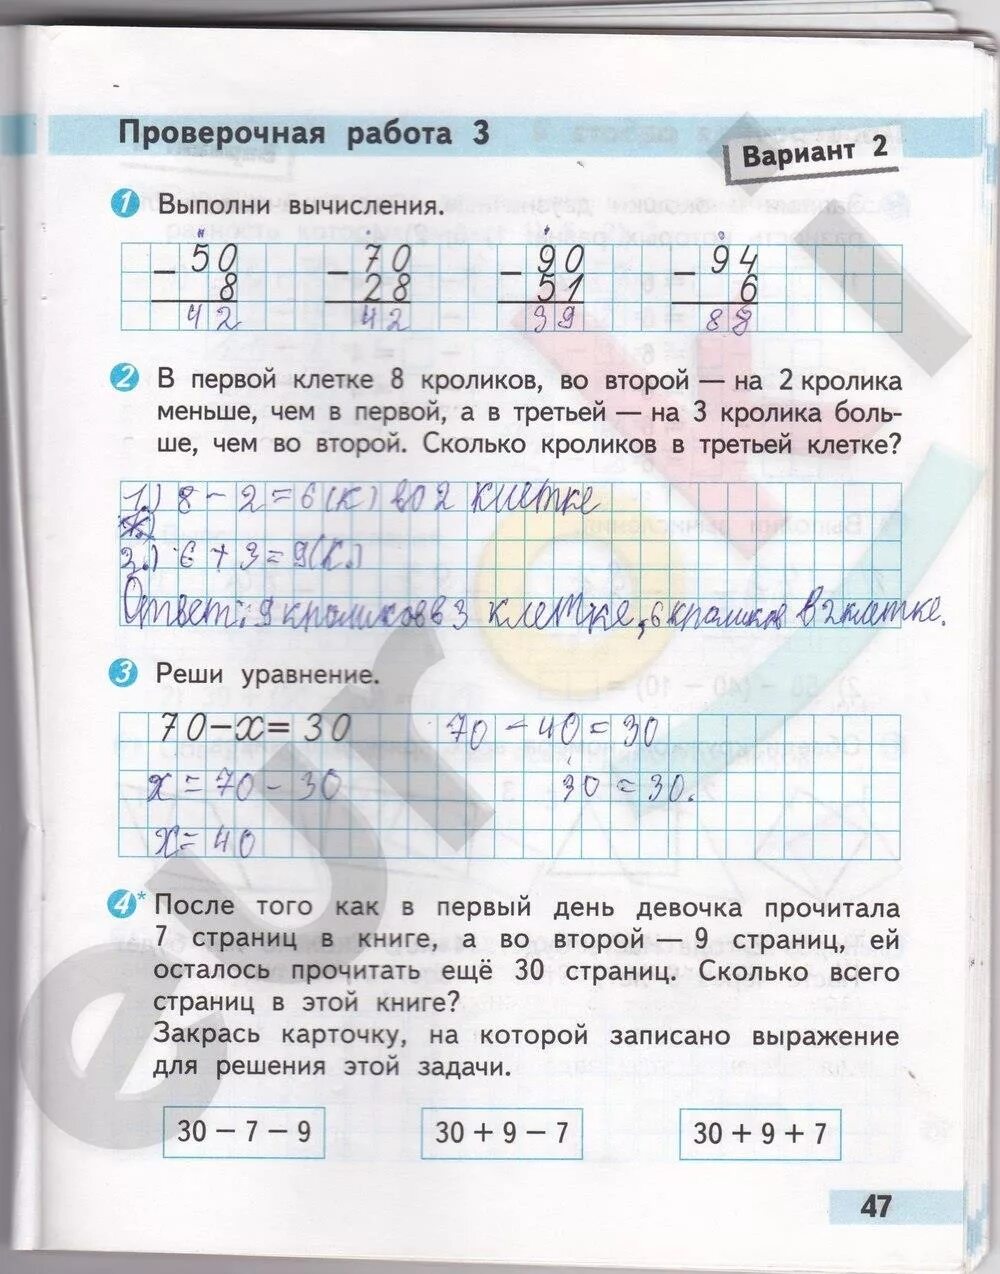 Проверочная работа 3
Вариант 2
1 Выполни вычисления.
− 50 − 70 − 90 − 94
8 28 51 6
42 42 39 88
2 В первой клетке 8 кроликов, во второй — на 2 кролика
меньше, чем в первой, а в третьей — на 3 кролика боль-
ше, чем во второй. Сколько кроликов в третьей клетке?
1.) 8 − 2 = 6 (К) во 2 клетке
2.) 6 + 3 = 9 (К.)
Ответ: 9 кроликов в 3 клетке, 6 кроликов в 2 клетке.
3 Реши уравнение.
70 − x = 30 70 − 40 = 30
x = 70 − 30 30 = 30.
x = 40
4* После того как в первый день девочка прочитала
7 страниц в книге, а во второй — 9 страниц, ей
осталось прочитать ещё 30 страниц. Сколько всего
страниц в этой книге?
Закрась карточку, на которой записано выражение
для решения этой задачи.
30 − 7 − 9 30 + 9 − 7 30 + 9 + 7
47
euroki